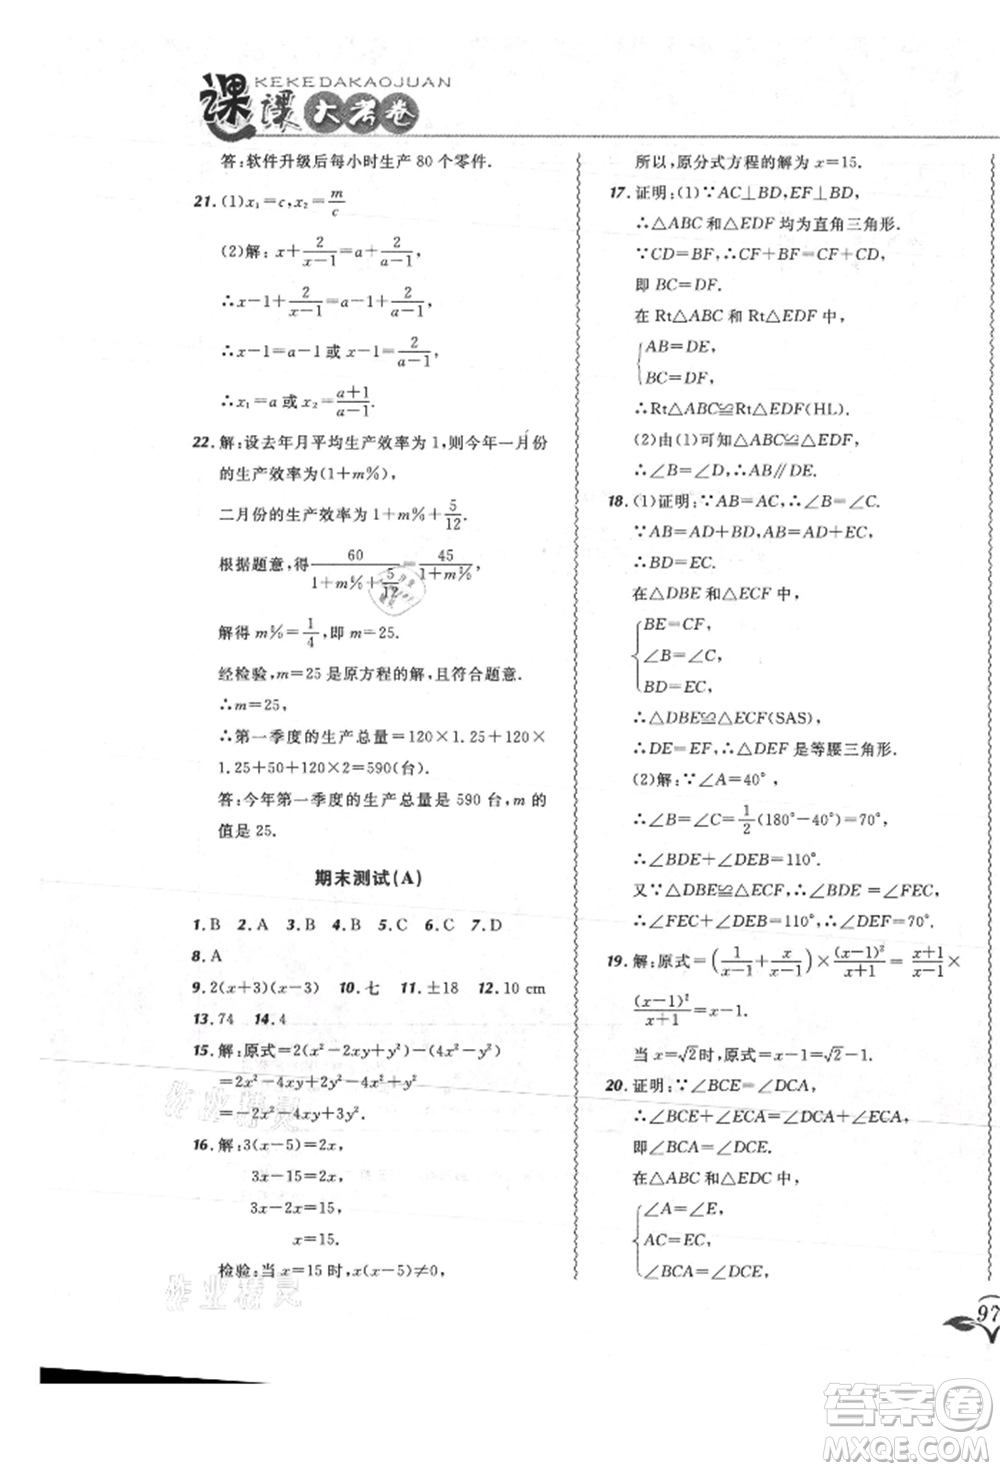 KEKEDAKAOJUAN
课课大考卷
答:软件升级后每小时生产 80 个零件.
21. (1)x₁=c, x₂=m/c
(2)解: x+2/(x-1)=a+2/(a-1),
∴x-1+2/(x-1)=a-1+2/(a-1),
∴x-1=a-1 或 x-1=2/(a-1),
∴x₁=a 或 x₂=(a+1)/(a-1).
22. 解:设去年月平均生产效率为 1,则今年一月份
的生产效率为(1+m%),
二月份的生产效率为 1+m%+5/12.
根据题意,得60/(1+m%+5/12)=45/(1+m%),
解得 m%=1/4,即 m=25.
经检验,m=25 是原方程的解,且符合题意.
∴m=25,
∴第一季度的生产总量=120×1.25+120×
1.25+50+120×2=590(台).
答:今年第一季度的生产总量是 590 台,m 的
值是 25.
期末测试(A)
1. B 2. A 3. B 4. B 5. C 6. C 7. D
8. A
9. 2(x+3)(x-3) 10. 七 11. ±18 12. 10 cm
13. 74 14. 4
15. 解:原式=2(x²-2xy+y²)-(4xy-y²)
=2x²-4xy+2y²-4xy+y²
=2x²-8xy+3y².
16. 解:3(x-5)=2x,
3x-15=2x,
3x-2x=15,
x=15.
检验:当 x=15 时,x(x-5)≠0,
所以,原分式方程的解为 x=15.
17. 证明:(1)∵AC⊥BD,EF⊥BD,
∴△ABC 和△EDF 均为直角三角形.
∵CD=BF,∴CF+BF=CF+CD,
即 BC=DF.
在 Rt△ABC 和 Rt△EDF 中,
AB=DE,
BC=DF,
∴Rt△ABC≌Rt△EDF(HL).
(2)由(1)可知△ABC≌△EDF,
∴∠B=∠D,∴AB∥DE.
18. (1)证明:∵AB=AC,∴∠B=∠C.
∵AB=AD+BD,AB=AD+EC,
∴BD=EC.
在△DBE 和△ECF 中,
BE=CF,
∠B=∠C,
BD=EC,
∴△DBE≌△ECF(SAS)
∴DE=EF,∴△DEF 是等腰三角形.
(2)解:∵∠A=40°,
∴∠B=∠C=1/2(180°-40°)=70°,
∴∠BDE+∠DEB=110°.
又∵△DBE≌△ECF,∴∠BDE=∠FEC,
∴∠FEC+∠DEB=110°,∴∠DEF=70°.
19. 解:原式=(1/(x-1)+x/(x-1))×(x-1)²/(x+1)=(x+1)/(x-1)×
(x-1)²/(x+1)=x-1.
当 x=√2时,原式=x-1=√2-1.
20. 证明:∵∠BCE=∠DCA,
∴∠BCE+∠ECA=∠DCA+∠ECA,
即∠BCA=∠DCE.
在△ABC 和△EDC 中,
∠A=∠E,
AC=EC,
∠BCA=∠DCE,
97
作业精灵
作业精灵
答案圈
MXQE.COM